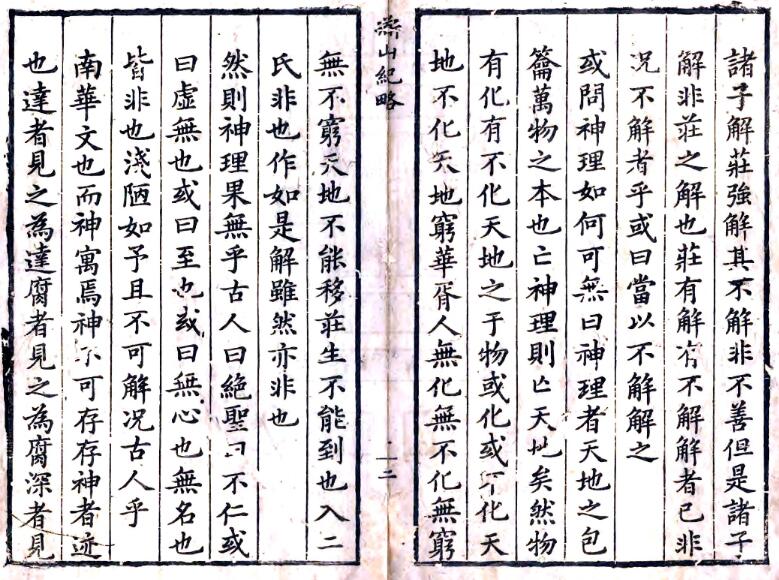 諸子解莊強解其不解非不善但是諸子
解非莊之解也莊有解有不解解者已非
况不解者乎或曰當以不解解之
或問神理如何可無曰神理者天地之包
籥萬物之本也亡神理則亾天地矣然物
有化有不化天地之于物或化或不化天
地不化天地窮華胥人無化無不化無窮
㵎山紀略
二
無不窮天地不能移莊生不能到也入二
氏非也作如是解雖然亦非也
然則神理果無乎古人曰絶聖曰不仁或
曰虛無也或曰至也或曰無心也無名也
皆非也淺陋如予且不可解况古人乎
南華文也而神寓焉神不可存存神者迹
也達者見之為達腐者見之為腐深者見